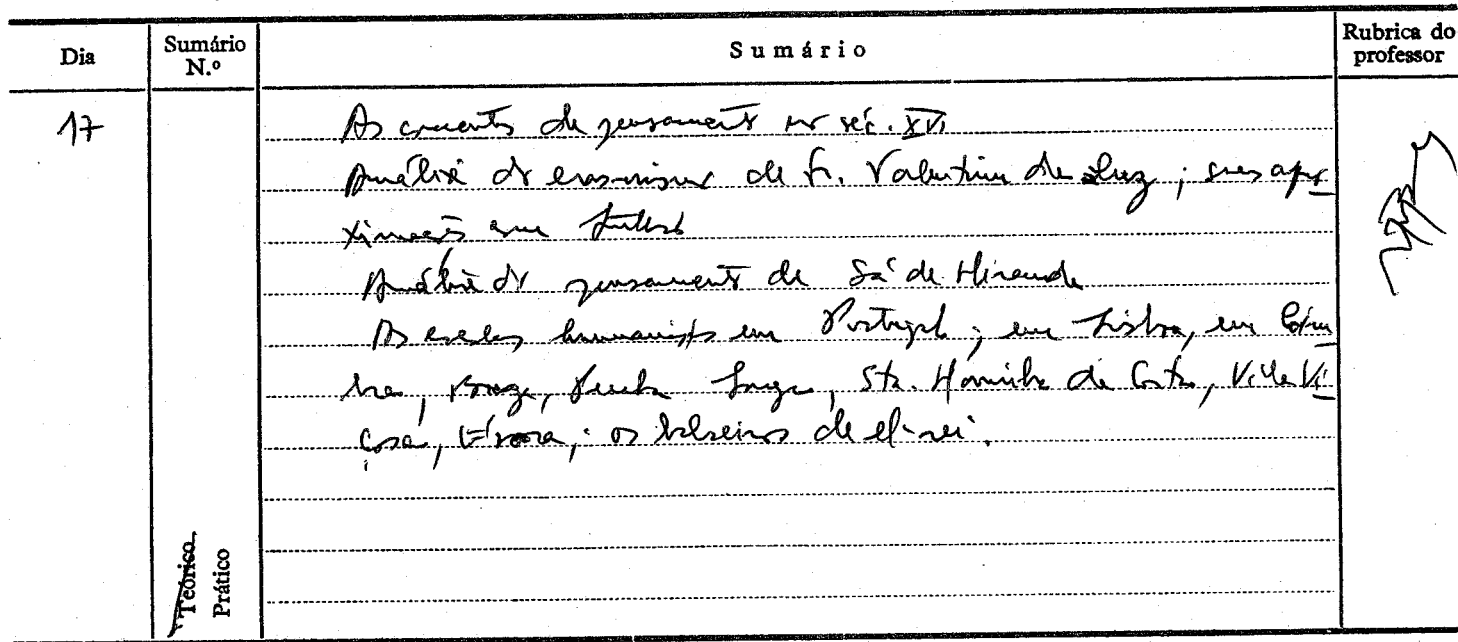 Dia
Sumário N.º
Sumário
Rubrica do professor
17
As correntes de pensamento no séc. XVI
Análise do erasmismo de fr. Valentim da Luz; sua apro
ximação
Análise do pensamento de Sá de Miranda
As escolas humanistas em Portugal; em Lisboa, em Coim
bra, Braga, Penha Longa, Sta. Marinha da Costa, Vila Vi
çosa, Évora; os bolseiros de el-rei.
Teórico
Prático